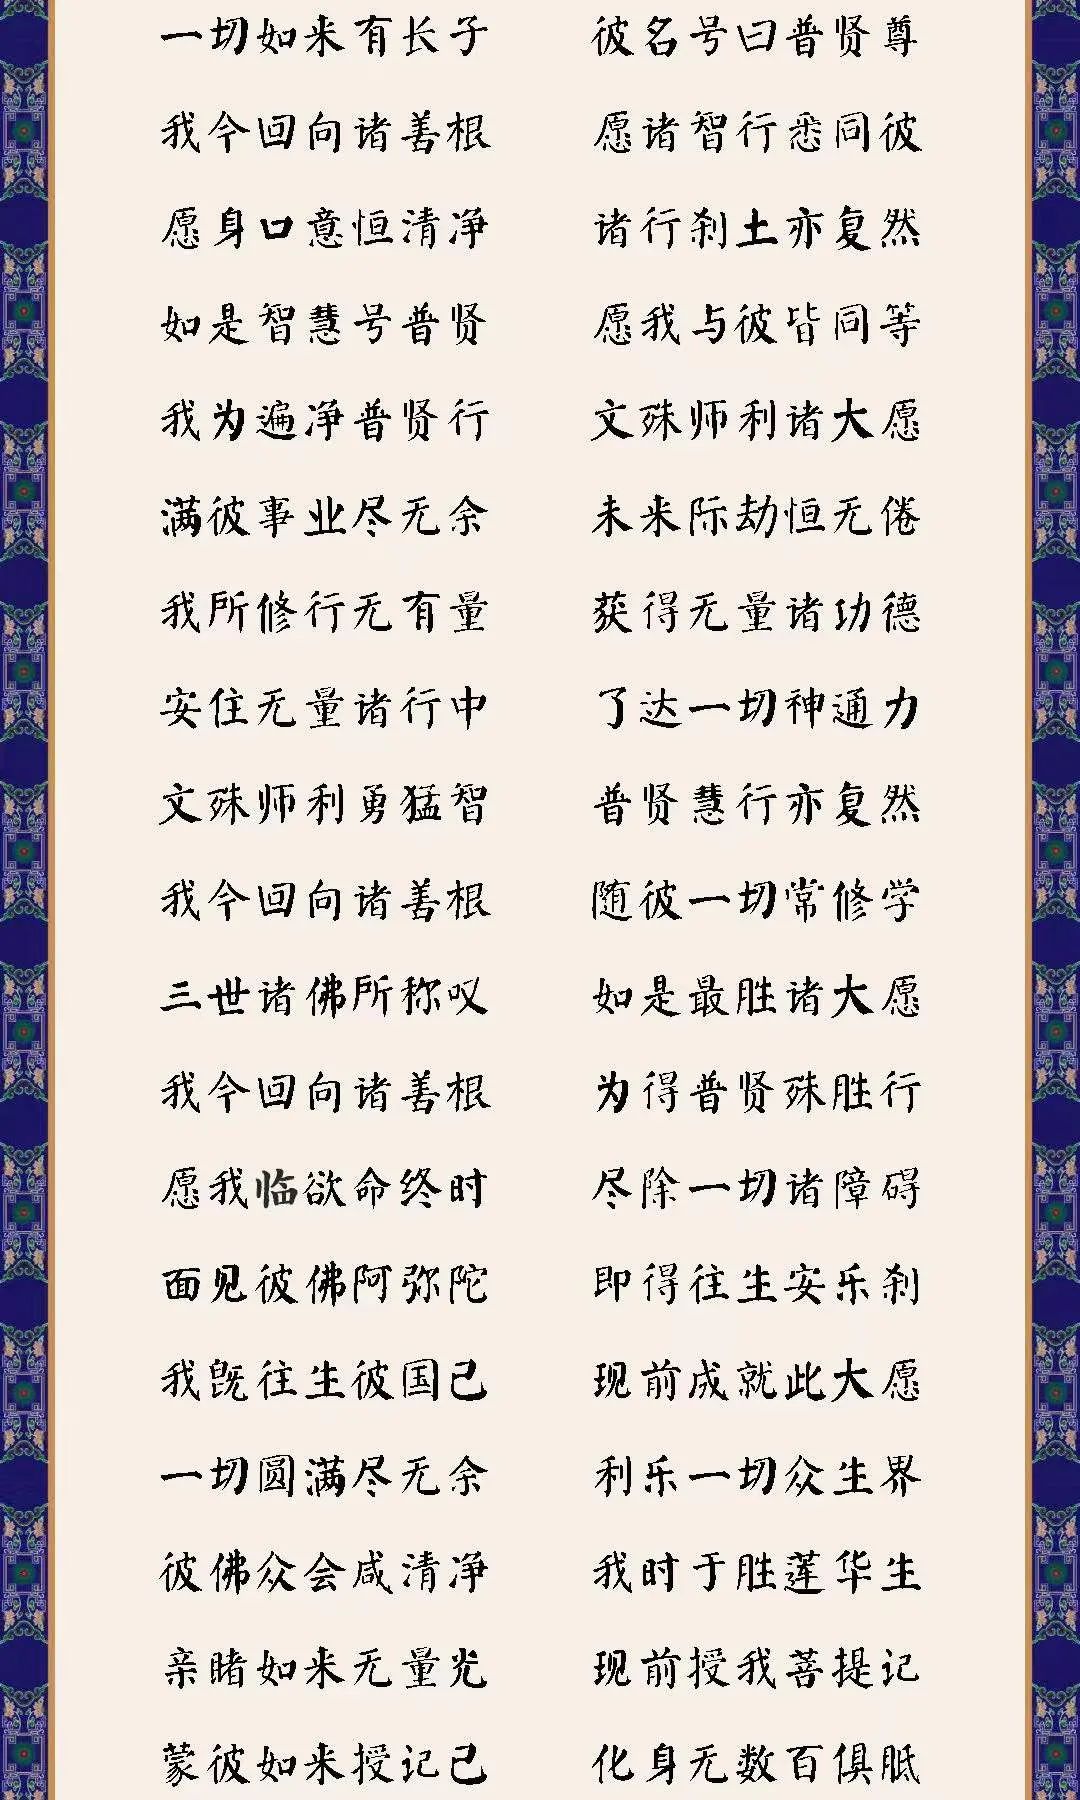 一切如来有长子 彼名号曰普贤尊
我今回向诸善根 愿诸智行悉同彼
愿身口意恒清净 诸行刹土亦复然
如是智慧号普贤 愿我与彼皆同等
我为遍净普贤行 文殊师利诸大愿
满彼事业尽无余 未来际劫恒无倦
我所修行无有量 获得无量诸功德
安住无量诸行中 了达一切神通力
文殊师利勇猛智 普贤慧行亦复然
我今回向诸善根 随彼一切常修学
三世诸佛所称叹 如是最胜诸大愿
我今回向诸善根 为得普贤殊胜行
愿我临欲命终时 尽除一切诸障碍
面见彼佛阿弥陀 即得往生安乐刹
我既往生彼国已 现前成就此大愿
一切圆满尽无余 利乐一切众生界
彼佛众会咸清净 我时于胜莲华生
亲睹如来无量光 现前授我菩提记
蒙彼如来授记已 化身无数百俱胝